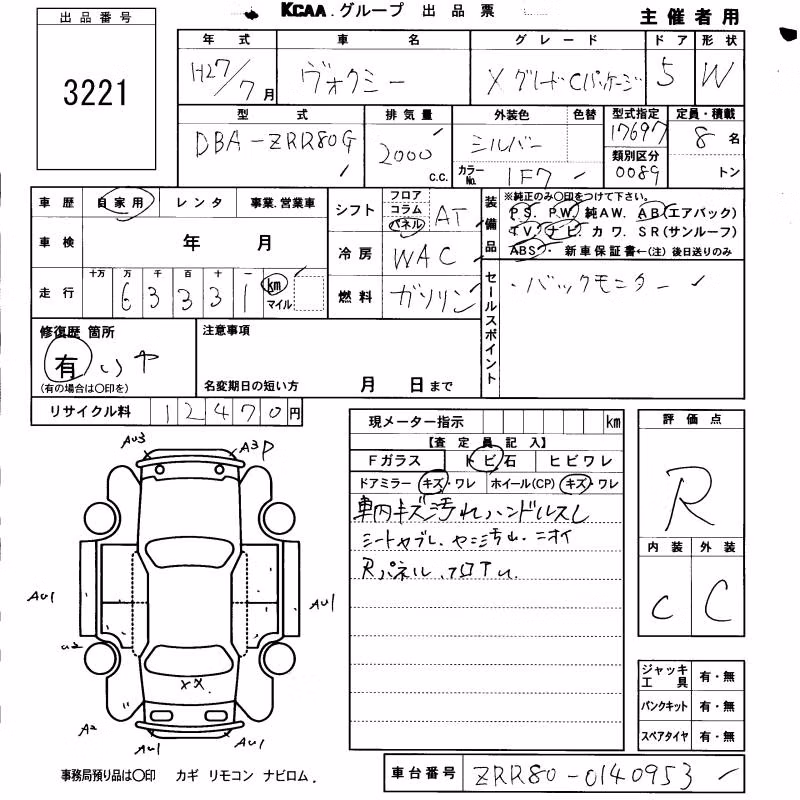 KCAA.グループ 出品票
主催者用
出品番号
3221
年式 車名 グレード ドア 形状
H27/7月 ヴォクシー X グレード Cパッケージ 5 W
型式 排気量 外装色 色替 型式指定 定員・積載
DBA-ZRR80G 2000 c.c. シルバー 17697 8名
カラーNo. 1F7 類別区分 0089 トン
車歴 自家用 レンタ 事業.営業車
車検 年 月
走行 十万 万 千 百 十 一
63331 km マイル
シフト フロア コラム パネル AT
冷房 WAC
燃料 ガソリン
装備品 ※純正のみ○印をつけて下さい。
PS. PW. 純AW. AB(エアバック)
TV. ナビ. カワ. SR(サンルーフ)
ABS. 新車保証書←(注) 後日送りのみ
セールスポイント
・バックモニター
修復歴 箇所
有
(有の場合は○印を)
注意事項
名変期日の短い方 月 日まで
リサイクル料 12470円
現メーター指示 km
【査定員記入】
Fガラス トビ石 ヒビワレ
ドアミラー キズ・ワレ ホイール(CP) キズ・ワレ
車内キズ汚れハンドルスレ
シートヤブレ. ヤニ汚れ. ニオイ
Rパネル.
評価点
R
内装 外装
C C
AU3 A3P
AU1 AU1
A2
AU1 AU1
XX
ジャッキ工具 有・無
パンクキット 有・無
スペアタイヤ 有・無
事務局預り品は○印 カギ リモコン ナビロム.
車台番号 ZRR80-0140953